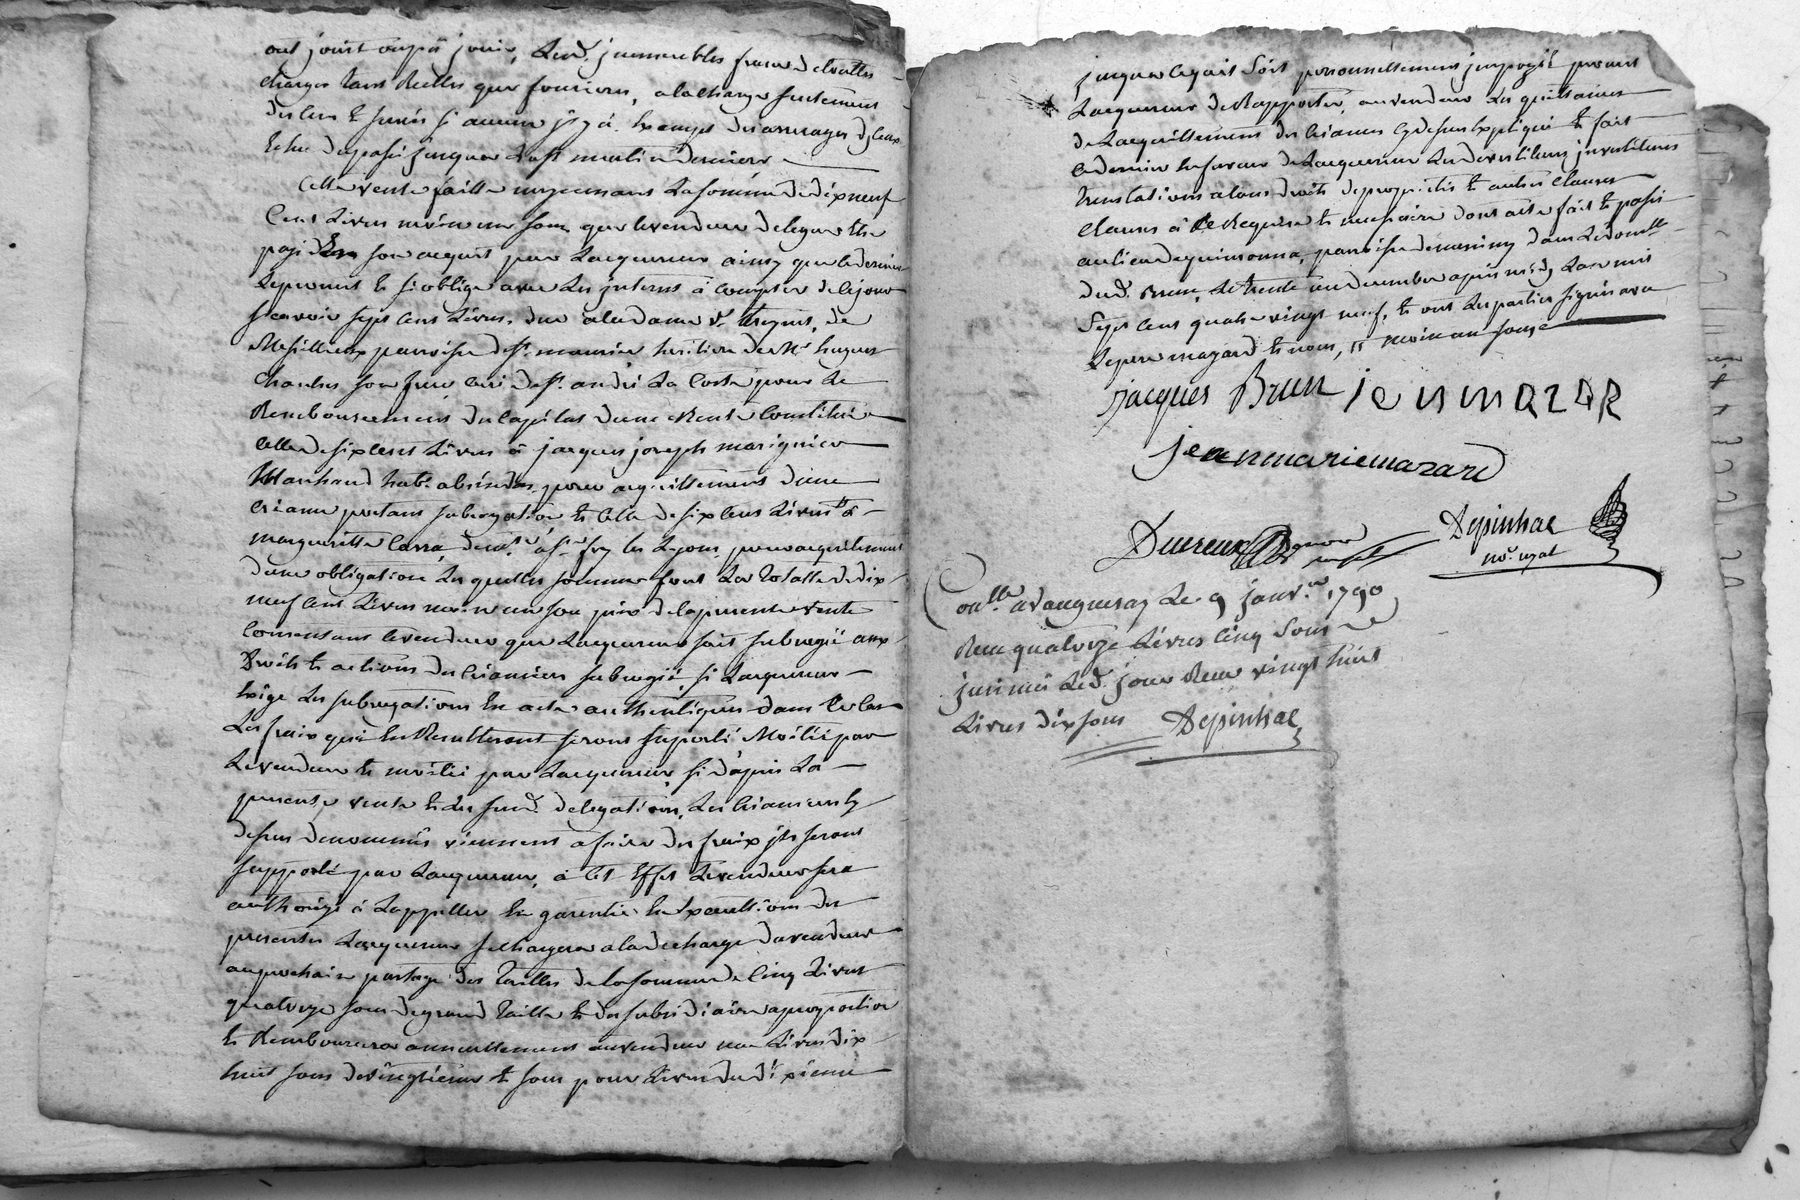 ont jouit oupû jouir, Lesd. jmmeubles francs de toutes
charges tant Réelles que foncieres, alacharge seulement
des cens & servis si aucun jl y à. Exempt des arrerages d'jceux
Echus du passé jusqua La st martin derniere
Cette vente faitte moyennant La somme de dixneuf
Cent Livres moins un sou, que levendeur delegue Etre
payé En son acquit par Lacquereur ainsy que ledernier
Le promet & s'oblige avec Les jnterets à compter de cejour
scavoir sept cent Livres, due aladame
paroisse de st. maurice heritiere de Mr hugues
Charles son frere curé de st. andré La Coste pour Le
Remboursement du Capital d'une Rente Constituée
celle de six cent Livres à jacques joseph marignier
Marchand habt. pour acquittement d'une
créance portant subrogation, & celle de six cens Livres à
margueritte Carra, dem.te à st. foy les Lyon, pour acquittement
d'une obligation Lesquelles sommes font La Totalle de dix
neuf cent Livres moins un sou prix de lapresente vente
Consentant levendeur que Lacquereur soit subrogé aux
Droits & actions des créanciers subrogé, si Lacquereur
Exige Les subrogations En acte authentiques dans Ce Cas
Les fraix qui En Resulteront seront suporté Moitié par
Levendeur & moitié par Lacquereur, si d'apres La
presente vente & les susd. delegations, Les Créanciers cy
dessus denommés viennent afaire des fraix jls seront
supporté par Lacquereur, à Cet Effet Levendeur sera
authorizé à Lappeller En garentie En Execution des
presentes Lacquereur se chargera ala decharge du vendeur
auprochain partage des Tailles de la somme de Cinq Livres
quatorze sous de grand Taille & du subsidiaire aproportion
& Remboursera annuellement auvendeur une Livre dix
huit sous de vingtieme & sous pour Livre du dixieme
jusquace quil soit personnellement jmpozé promet
Lacquereur de Rapporter auvendeur Les quittances
de Lacquittement des Créances cy dessus Expliqué & fait
Cedernier En faveur de Lacquereur Les devestitures jnvestitures
Translations atous droits de propriettés & autres Clauses
Clauses à ce Requise & necessaire dont acte fait & passé
aulieu dequinsonna, paroisse dans Ledomlle
dud. Brun, Le trente un decembre apres midy Lan mil
Sept Cent quatre vingt neuf, & ont Les parties signés avec
Lepere mazard & nous, moin un sous
jacques Brun jean mazar
jeanmariemazard
Depinhac
no.e royal
Con.lle a Le 9 janv.er 1790
Reçu quatorze Livres cinq Sous
jnsinué Led. jour Reçu vingt huit
Livres dix sous Depinhac